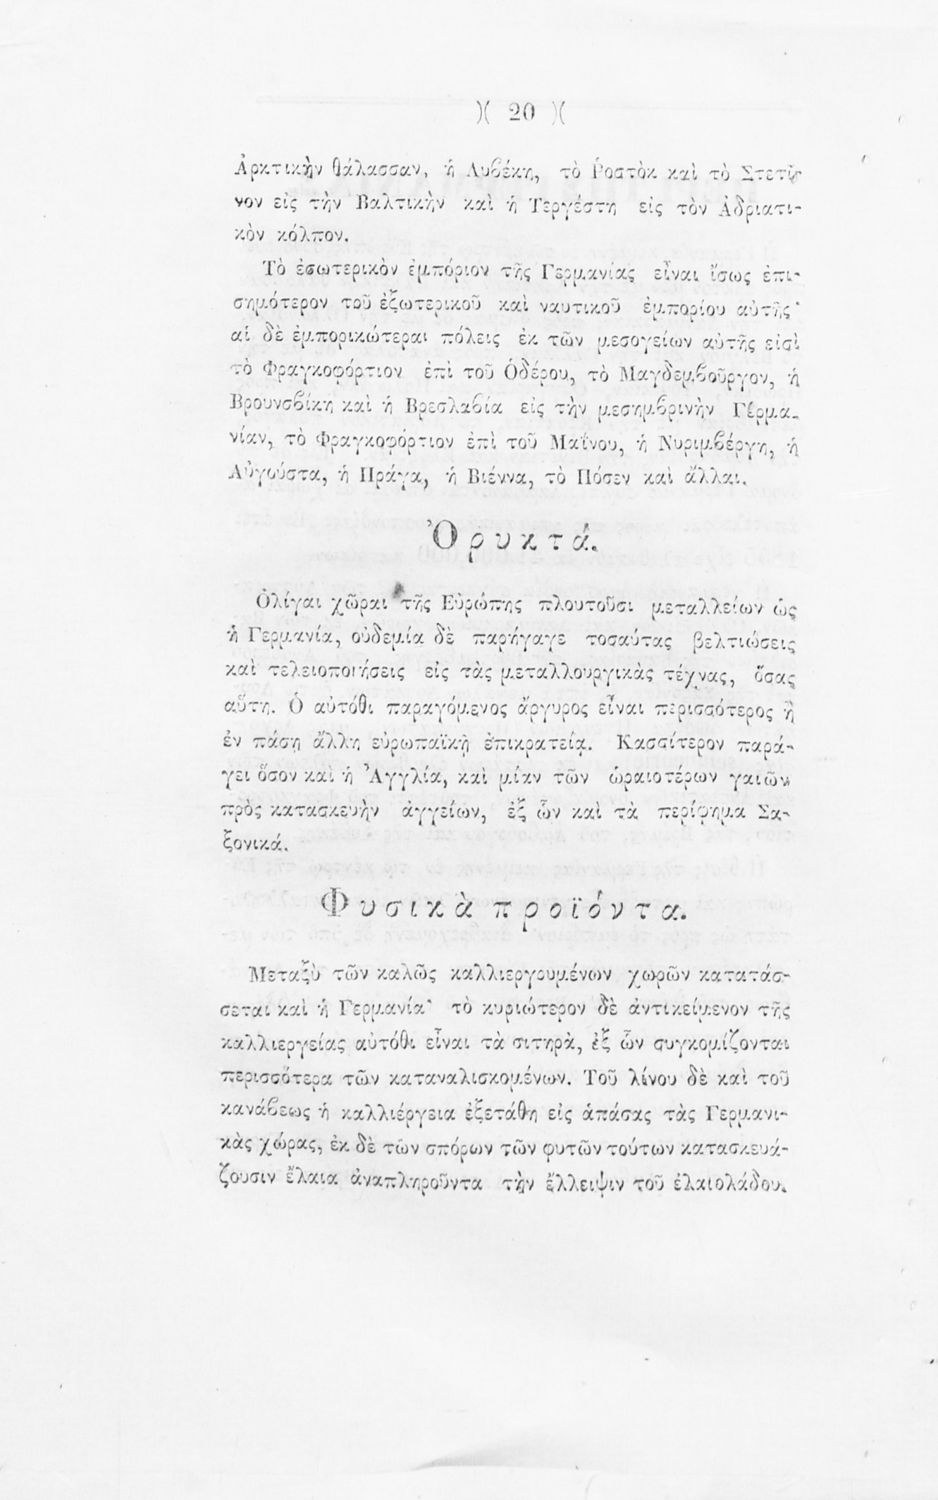 )( 20 )(
Ἀρκτικὴν θάλασσαν, ἡ Λυβέκη, τὸ Ῥοστὸκ καὶ τὸ Στετῖ-
νον εἰς τὴν Βαλτικὴν καὶ ἡ Τεργέστη εἰς τὸν Ἀδριατι-
κὸν κόλπον.
Τὸ ἐσωτερικὸν ἐμπόριον τῆς Γερμανίας εἶναι ἴσως ἐπι-
σημότερον τοῦ ἐξωτερικοῦ καὶ ναυτικοῦ ἐμπορίου αὐτῆς·
αἱ δὲ ἐμπορικώτεραι πόλεις ἐκ τῶν μεσογείων αὐτῆς εἰσὶ
τὸ Φραγκοφόρτιον ἐπὶ τοῦ Ὀδέρου, τὸ Μαγδεμβοῦργον, ἡ
Βρουνσβίκη καὶ ἡ Βρεσλαβία εἰς τὴν μεσημβρινὴν Γερμα-
νίαν, τὸ Φραγκοφόρτιον ἐπὶ τοῦ Μαΐνου, ἡ Νυριμβέργη, ἡ
Αὐγούστα, ἡ Πράγα, ἡ Βιέννα, τὸ Πόσεν καὶ ἄλλαι.
Ὀρυκτά.
Ὀλίγαι χῶραι τῆς Εὐρώπης πλουτοῦσι μεταλλείων ὡς
ἡ Γερμανία, οὐδεμία δὲ παρήγαγε τοσαύτας βελτιώσεις
καὶ τελειοποιήσεις εἰς τὰς μεταλλουργικὰς τέχνας, ὅσας
αὕτη. Ὁ αὐτόθι παραγόμενος ἄργυρος εἶναι περισσότερος ἢ
ἐν πάσῃ ἄλλῃ εὐρωπαϊκῇ ἐπικρατείᾳ. Κασσίτερον παρά-
γει ὅσον καὶ ἡ Ἀγγλία, καὶ μίαν τῶν ὡραιοτέρων γαιῶν
πρὸς κατασκευὴν ἀγγείων, ἐξ ὧν καὶ τὰ περίφημα Σα-
ξονικά.
Φυσικὰ προϊόντα.
Μεταξὺ τῶν καλῶς καλλιεργουμένων χωρῶν κατατάσ-
σεται καὶ ἡ Γερμανία· τὸ κυριώτερον δὲ ἀντικείμενον τῆς
καλλιεργείας αὐτόθι εἶναι τὰ σιτηρὰ, ἐξ ὧν συγκομίζονται
περισσότερα τῶν καταναλισκομένων. Τοῦ λίνου δὲ καὶ τοῦ
κανάβεως ἡ καλλιέργεια ἐξετάθη εἰς ἁπάσας τὰς Γερμανι-
κὰς χώρας, ἐκ δὲ τῶν σπόρων τῶν φυτῶν τούτων κατασκευά-
ζουσιν ἔλαια ἀναπληροῦντα τὴν ἔλλειψιν τοῦ ἐλαιολάδου.